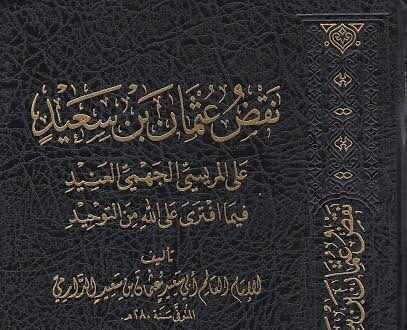 نَقْضُ عُثْمَانَ بْنِ سَعِيدٍ
عَلَى المَرِيسِيِّ الجَهْمِيِّ العَنِيدِ
فِيمَا افْتَرَى عَلَى اللهِ مِنَ التَّوْحِيدِ
تأليف
للإمام العالم أبي سعيد عثمان بن سعيد الدارمي
المتوفى سنة ٢٨٠ هـ
نَقْضُ عُثْمَانَ بْنِ